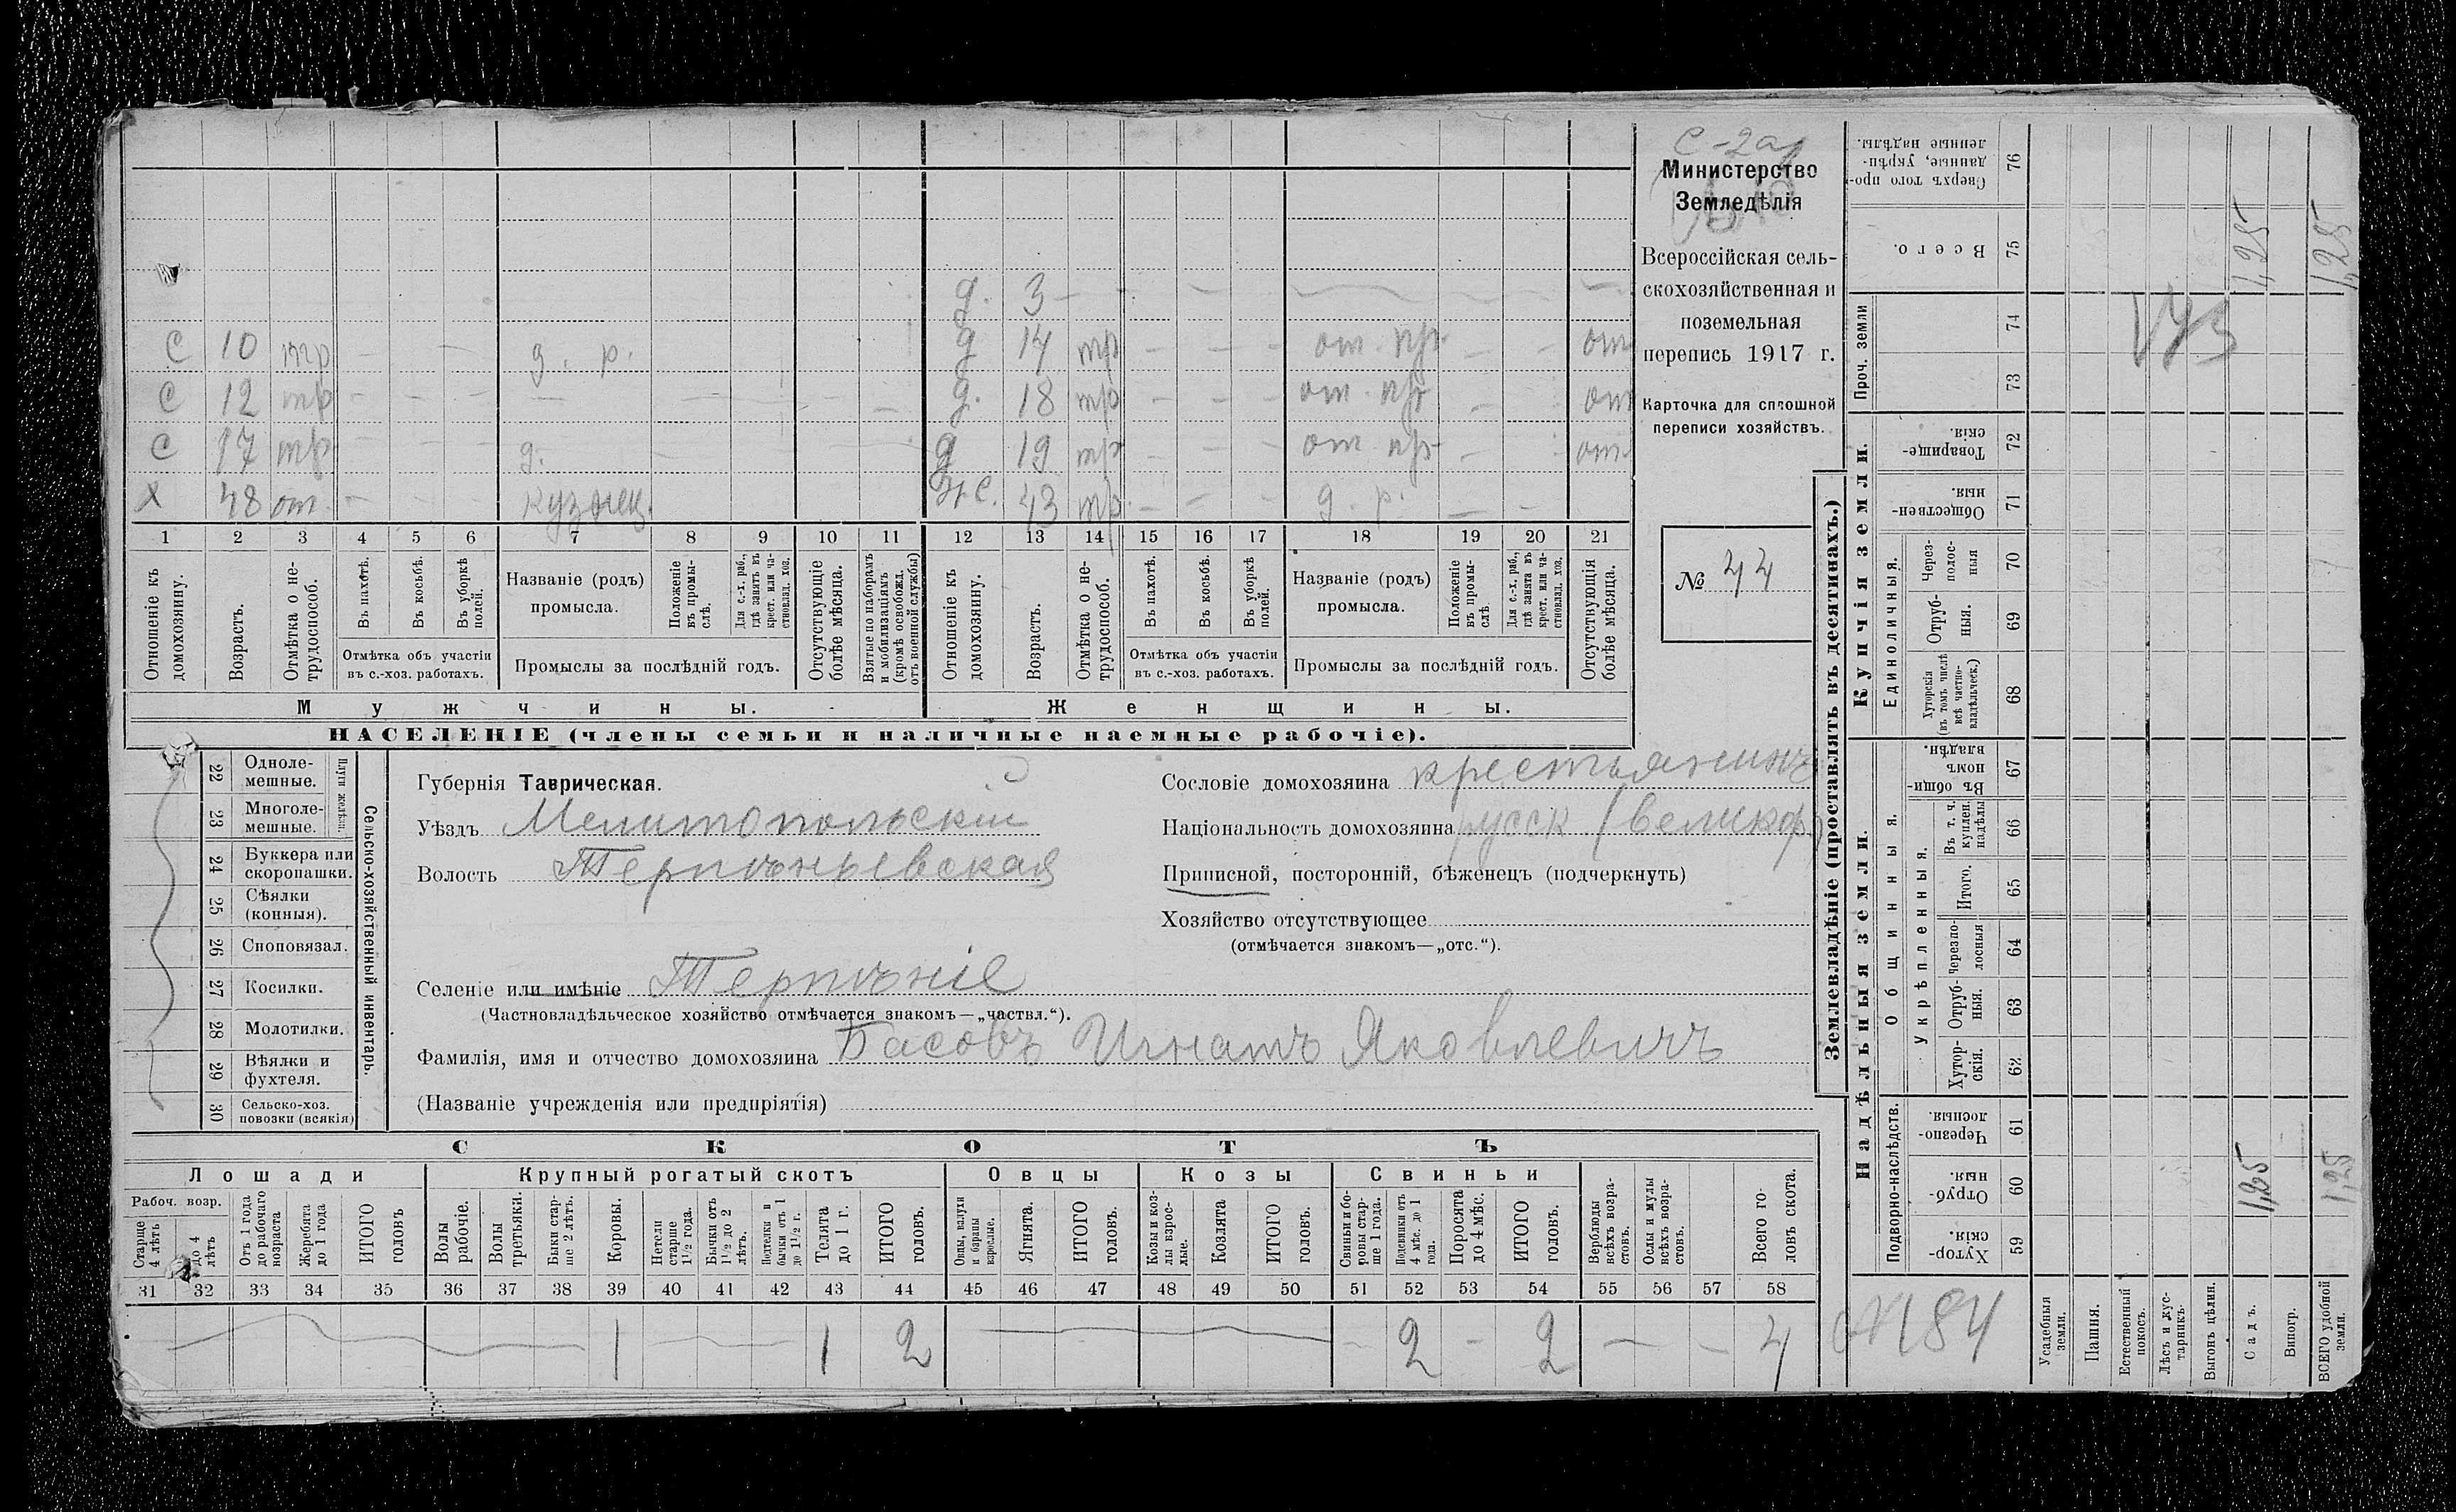 С - 2 а
Министерство
Земледѣлія
Всероссійская сель-
скохозяйственная и
поземельная
перепись 1917 г.
Карточка для сплошной
переписи хозяйствъ.
№ 44
д. 3 — — — — — —
С 10 тр — — д. р. д 14 тр — — — от. пр. — от
С 12 тр — — — — — — — — д. 18 тр — — — от. пр — от
С 17 тр — — — д. — д 19 тр — — — от пр — от
Х 48 от. — — — кузнец. ж. 43 тр. — — — д. р. — —
1 2 3 4 5 6 7 8 9 10 11 12 13 14 15 16 17 18 19 20 21
Отношеніе къ домохозяину.
Возрастъ.
Отмѣтка о не-трудоспособ.
Въ пахотѣ.
Въ косьбѣ.
Въ уборкѣ полей.
Отмѣтка объ участіи въ с.-хоз. работахъ.
Названіе (родъ) промысла.
Положеніе въ промы-слѣ.
Для с.-х. раб., гдѣ занятъ въ крест. или ча-стновлад. хоз.
Промыслы за послѣдній годъ.
Отсутствующіе болѣе мѣсяца.
Взятые по наборамъ и мобилизаціямъ (кромѣ освобожд. отъ военной службы)
Отношеніе къ домохозяину.
Возрастъ.
Отмѣтка о не-трудоспособ.
Въ пахотѣ.
Въ косьбѣ.
Въ уборкѣ полей.
Отмѣтка объ участіи въ с.-хоз. работахъ.
Названіе (родъ) промысла.
Положеніе въ промы-слѣ.
Для с.-х. раб., гдѣ занята въ крест. или ча-стновлад. хоз.
Промыслы за послѣдній годъ.
Отсутствующія болѣе мѣсяца.
Мужчины. Женщины.
НАСЕЛЕНІЕ (члены семьи и наличные наемные рабочіе).
Сельско-хозяйственный инвентарь.
Плуги желѣзн.
22 Одноле-мешные.
23 Многоле-мешные.
24 Буккера или скоропашки.
25 Сѣялки (конныя).
26 Сноповязал.
27 Косилки.
28 Молотилки.
29 Вѣялки и фухтеля.
30 Сельско-хоз. повозки (всякія)
Губернія Таврическая.
Уѣздъ Мелитопольскій
Волость Терпѣньевская
Селеніе или имѣніе Терпѣніе
(Частновладѣльческое хозяйство отмѣчается знакомъ—„частвл.“).
Фамилія, имя и отчество домохозяина Басовъ Игнатъ Яковлевичъ
(Названіе учрежденія или предпріятія)
Сословіе домохозяина крестьянинъ
Національность домохозяина русск (великор)
Приписной, посторонній, бѣженецъ (подчеркнуть)
Хозяйство отсутствующее
(отмѣчается знакомъ—„отс.“).
СКОТЪ
Лошади Крупный рогатый скотъ Овцы Козы Свиньи
Рабоч. возр.
Старше 4 лѣтъ
до 4 лѣтъ
Отъ 1 года до рабочаго возраста
Жеребята до 1 года
ИТОГО головъ
Волы рабочіе.
Волы третьяки.
Быки стар-ше 2 лѣтъ.
Коровы.
Нетели старше 1½ года.
Бычки отъ 1½ до 2 лѣтъ.
Подтелки и бычки отъ 1 до 1½ г.
Телята до 1 г.
ИТОГО головъ.
Овцы, валухи и бараны взрослые.
Ягнята.
ИТОГО головъ.
Козы и коз-лы взрос-лые.
Козлята
ИТОГО головъ.
Свиньи и бо-ровы стар-ше 1 года.
Подсвинки отъ 4 мѣс. до 1 года.
Поросята до 4 мѣс.
ИТОГО головъ.
Верблюды всѣхъ возра-стовъ.
Ослы и мулы всѣхъ возра-стовъ.
Всего го-ловъ скота.
31 32 33 34 35 36 37 38 39 40 41 42 43 44 45 46 47 48 49 50 51 52 53 54 55 56 57 58
1 1 2 — 2 — 2 — — 4
Землевладѣніе (проставлять въ десятинахъ.)
Купчія земли.
Надѣльныя земли.
Сверхъ того про-данные, укрѣп-ленные надѣлы. 76
Всего. 75 1,25 1,25
Проч. земли 74 73
Товарище-скія. 72
Обществен-ныя. 71
Единоличныя.
Черезпо-лос-ныя 70
Отруб-ныя. 69
Хуторскія (въ томъ числѣ всѣ частно-владѣльческ.) 68
Общинныя.
Въ общи-номъ владѣн. 67
Укрѣпленныя.
Въ т. ч. куплен. надѣлы 66
Итого. 65
Черезпо-лосныя 64
Отруб-ныя. 63
Хутор-скія. 62
Подворно-наслѣдств.
Черезпо-лосныя 61
Отруб-ныя. 60 1,25 1,25
Хутор-скія. 59
№ 84
Усадебныя земли.
Пашня.
Естественный покосъ.
Лѣсъ и кус-тарникъ.
Выгонъ цѣлин.
Садъ.
Виногр.
ВСЕГО удобной земли.